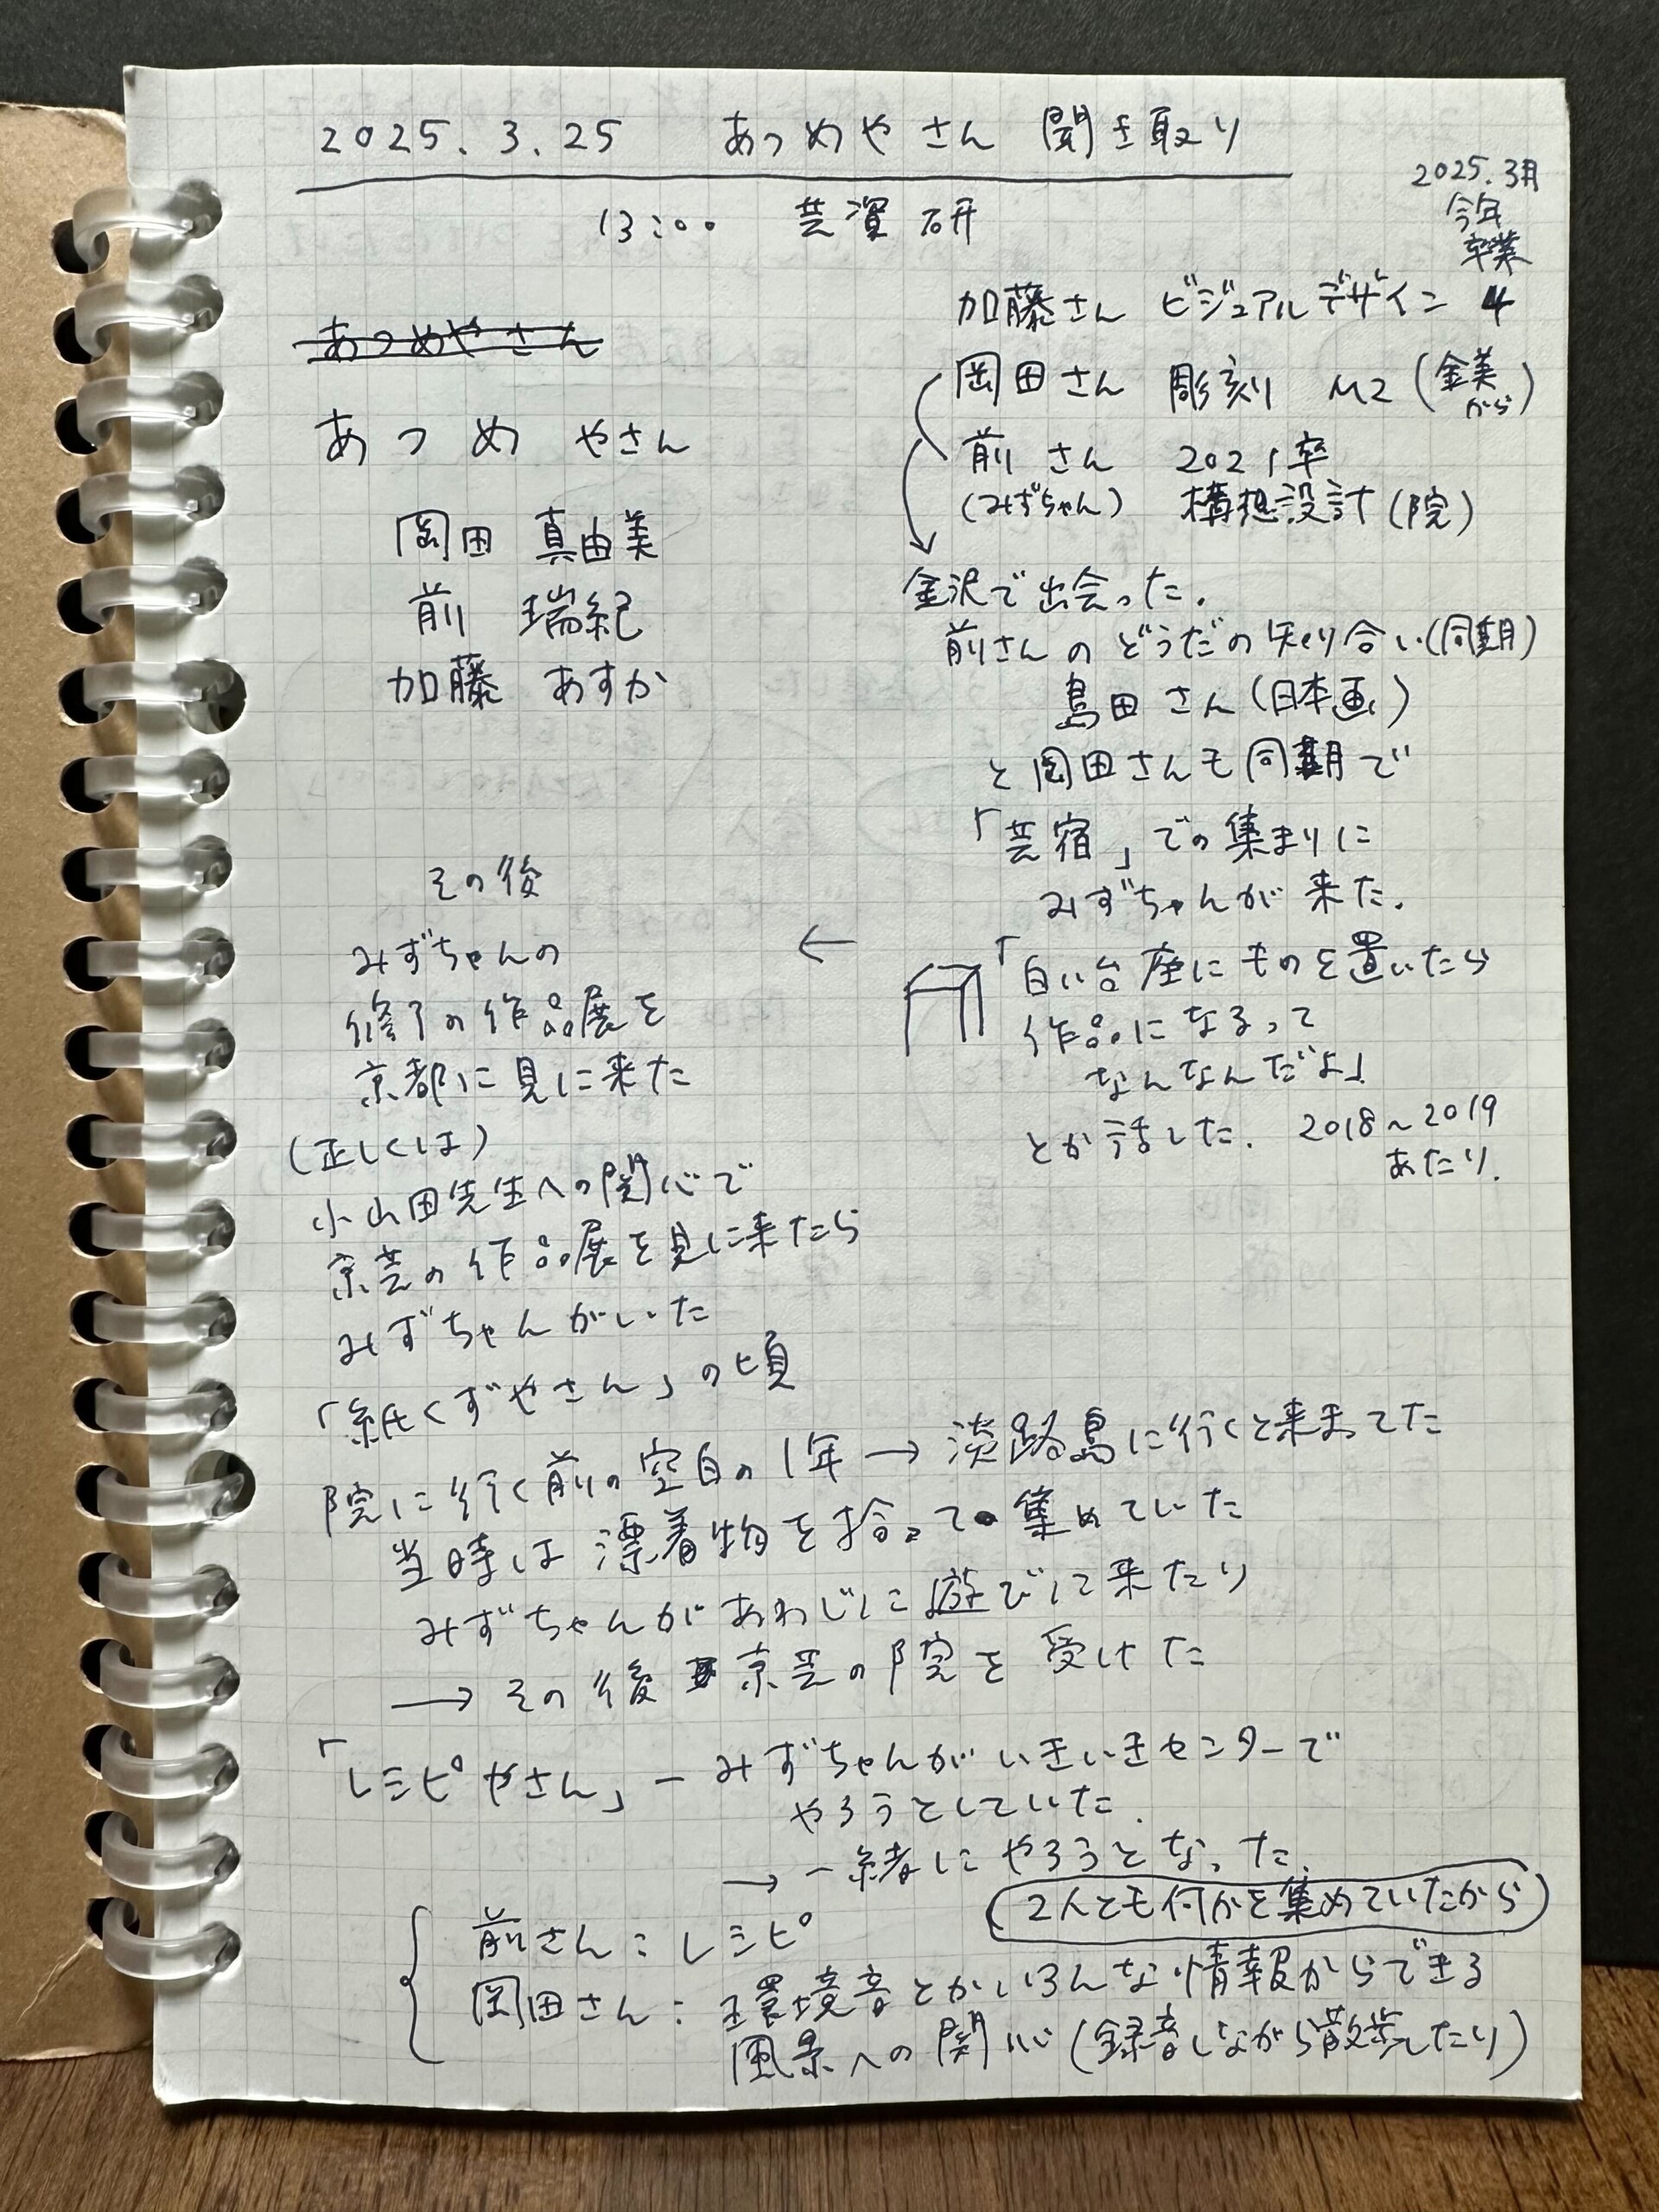 2025.3.25 あつめやさん 聞き取り
13:00 芸資研
2025.3月
今年
卒業
あつめやさん
あつめ やさん
岡田 真由美
前 瑞紀
加藤 あすか
加藤さん ビジュアルデザイン 4
岡田さん 彫刻 M2 (金美から)
前さん 2021卒
(みずちゃん) 構想設計(院)
金沢で出会った.
前さんのどうだの知り合い(同期)
島田さん(日本画)
と岡田さんも同期で
「芸宿」での集まりに
みずちゃんが来た.
「白い台座にものを置いたら
作品になるって
なんなんだよ」
とか話した. 2018~2019
あたり.
←
その後
みずちゃんの
修了の作品展を
京都に見に来た
(正しくは)
小山田先生への関心で
京芸の作品展を見に来たら
みずちゃんがいた
「紙くずやさん」の頃
院に行く前の空白の1年→淡路島に行くと来まってた
当時は漂着物を拾って集めていた
みずちゃんがあわじに遊びに来たり
→その後 京芸の院を受けた
「レシピやさん」ーみずちゃんがいきいきセンターで
やろうとしていた.
→一緒にやろうとなった.
2人とも何かを集めていたから
前さん:レシピ
岡田さん:環境音とかいろんな情報からできる
風景への関心(録音しながら散歩したり)